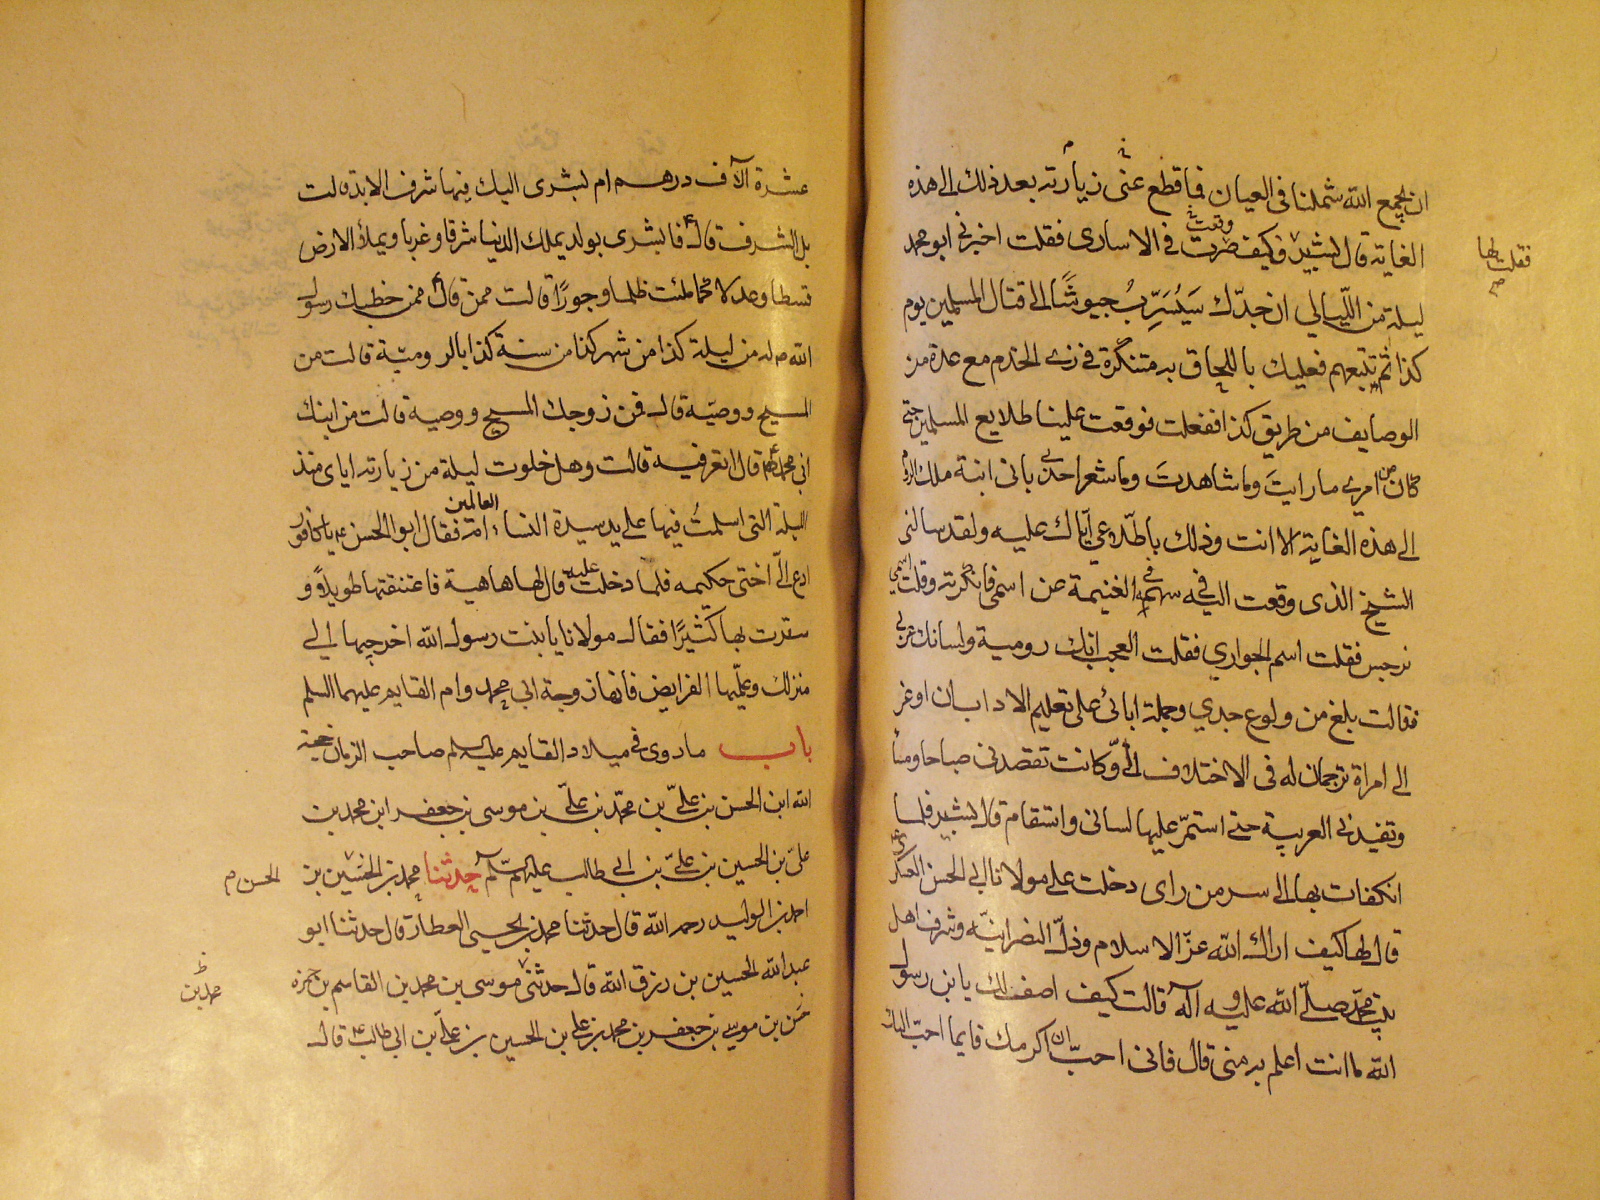 ان يجمع الله شملنا فى العيان فما قطع عنى زيارته بعد ذلك الى هذه
الغاية قال بشير فكيف صرت وقعت فى الاسارى فقلت اخبرنى ابو محمد
فقلت لها
ليلة من الليالي ان جدّك سَيُسَرِّبُ جيوشًا الى قتال المسلمين يوم
كذا ثم تتبعهم فعليك باللحاق به متنكرة فى زى الخدم مع عدة من
الوصايف من طريق كذا ففعلت فوقعت علينا طلايع المسلمين حتى
كان من امرى ما رايتَ وما شاهدتَ وما شعر احد بى بانى ابنة ملك الروم
الى هذه الغاية الا انت وذلك باطّلاعي ايّاك عليه ولقد سالنى
الشيخ الذى وقعت اليه فى سهم الغنيمة عن اسمى فانكرته وقلت
نرجس فقلت اسم الجواري فقلت العجب انك رومية ولسانك عربى
فقالت بلغ من ولوع جدي وحمله اياى على تعلم الاداب ان اوعز
الى امراة ترجمان له فى الاختلاف الىّ وكانت تقصدنى صباحا ومساً
وتفيدنى العربية حتى استمرّ عليها لسانى واستقام قال بشير فلما
انكفات بها الى سر من راى دخلت على مولانا ابى الحسن العسكرى
قال لها كيف اراك الله عزّ الاسلام وذلّ النصرانيّه وشرف اهل
بيت محمّد صلى الله عليه و آله قالت كيف اصف لك يا بن رسول
الله ما انت اعلم به منى قال فانى احبّ ان اكرمك فايما احبّ اليك
عشرة آلاف درهم ام بشرى اليك فيها شرف الابد قالت
بل الشرف قال ع فابشرى بولد يملك الدنيا شرقا وغربا ويملأ الارض
قسطا وعدلا كما ملئت ظلما وجورًا قالت ممن قال ممن خطبك رسول
الله ص له من ليلة كذا من شهر كذا من سنة كذا بالرومية قالت من
المسيح ووصيّه قال فمن زوجك المسيح ووصيه قالت من ابنك
ابى محمد ع قال اتعرفيه قالت وهل خلوت ليلة من زيارته اياى منذ
الليلة التى اسلمتُ فيها على يد سيدة النساء العالمين امه فقال ابو الحسن ع يا كافور
ادع الىّ اختى حكيمه فلما دخلت عليه قال لها ها هية فاعتنقتها طويلاً و
سرّت بها كثيرًا فقال مولانا يا بنت رسول الله اخرجيها الى
منزلك وعلّميها الفرايض فانها زوجة ابى محمد وام القايم عليهما السلم
باب ما روى فى ميلاد القايم عليه السلم صاحب الزمان حجة
الله ابن الحسن بن علىّ بن محمّد بن علىّ بن موسى بن جعفر ابن محمد بن
علىّ بن الحسين بن علىّ بن ابى طالب عليهم السّلم حدثنا محمد بن الحسين بن
الحسن م
احمد بن الوليد رحمه الله قال حدثنا محمد بن يحيى العطار قال حدثنا ابو
عبد الله الحسين بن رزق الله قال حدثنى موسى بن محمد بن القاسم بن حمزه
محمد بن
بن موسى بن جعفر بن محمد بن على بن الحسين بن علىّ بن ابى طالب ع قال